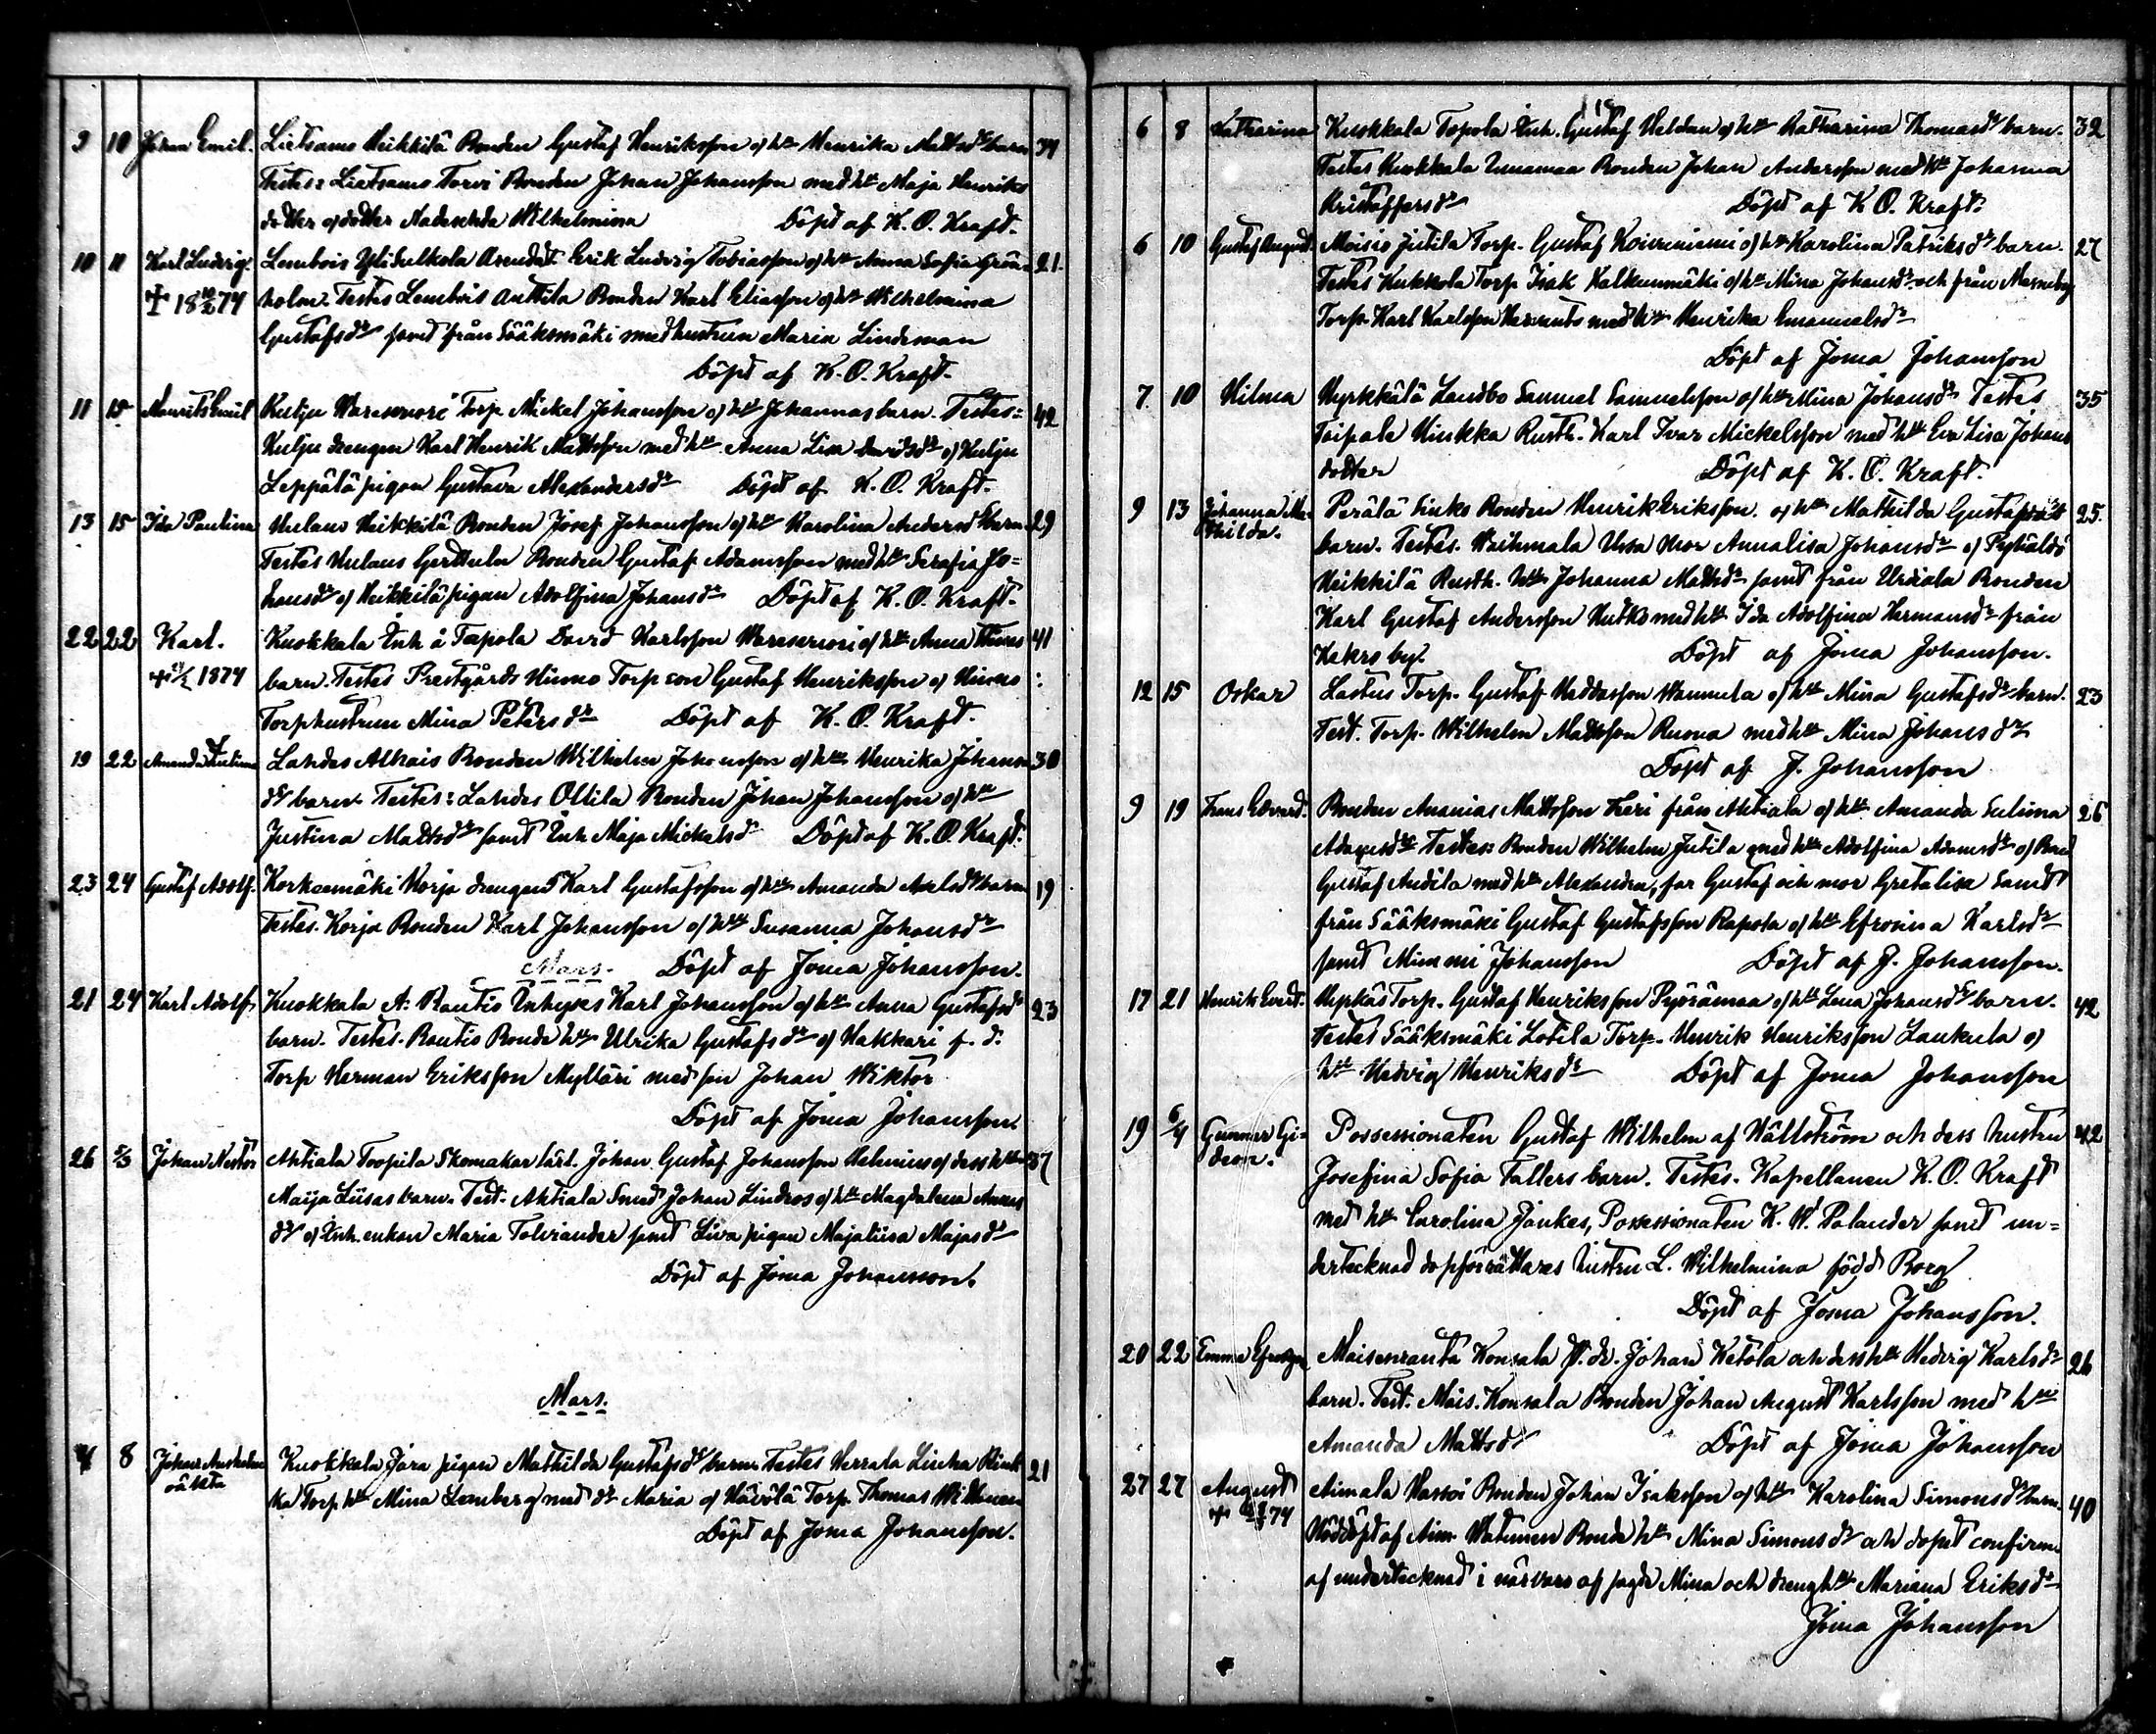 9 10 Johan Emil. Lietsams Heikkilä Bonden Gustaf Henriksson o/ h:u Henrika Mattsdr barn 34
Testes: Lietsams Torvi Bonden Johan Johansson med h:u Maja Henriks
dotter o/ dotter Wilhelmina Döpt af K. O. Kraft.
10 11 Karl Ludvig. Lembois Yli Sulkola Arendat. Erik Ludvig Tobiasson o/ h:u Anna Sofia Grön= 21.
18 74 holm. Testes Lembois Anttila Bonden Karl Eliasson o/ h:u Wilhelmina
Gustafsdr samt från Sääksmäki med hustrun Maria Lindeman
Döpt af K. O. Kraft.
11 15 Maurits Emil Kulju Torp. Mickel Johansson o/ h:u Johannas barn. Testes= 42
Kulju drengen Karl Henrik Mattsson med h:u Anna Lisa Davidsdr o/ Kulju
Leppälä pigan Gustava Alexandersdr Döpt af K. O. Kraft.
13 15 Ida Paulina Hulaus Heikkilä Bonden Josef Johansson o/ h:u Karolina Andersdr barn 29
Testes Hulaus Gerttula Bonden Gustaf Adamsson med h:u Serafia Jo=
hansdr o/ Heikkilä pigan Adolfina Johansdr Döpt af K. O. Kraft.
22 22 Karl. Kuokkala Inh å Tapola David Karlsson o/ h:u Anna 41
1874 barn. Testes Prestgårds Hinno Torp son Gustaf Henriksson o/ Hinno
Torphustrun Mina Petersdr Döpt af K. O. Kraft.
19 22 Amanda Lahdes Alhais Bonden Wilhelm Johansson o/ h:u Henrika Johans 30
dr barn. Testes: Lahdes Ollila Bonden Johan Johansson o/ h:u
Justina Mattsdr samt Inh Maja Mickelsdr Döpt af K. O. Kraft.
23 24 Gustaf Adolf. Korkeemäki Korja drengens Karl Gustafsson o/ h:u Amanda Axelsdr barn 19
Testes. Korja Bonden Karl Johansson o/ h:u Susanna Johansdr
Mars. Döpt af Joma Johansson.
21 24 Karl Adolf. Kuokkala A. Rautis Inhyses Karl Johansson o/ h:u Anna Gustafsdr 23
barn. Testes. Rautis Bonde h:u Ulrika Gustafsdr o/ Hakkari f. d.
Torp Herman Eriksson Mylläri med son Johan Wiktor
Döpt af Joma Johansson.
26 2/3 Johan Nestor Ahtiala Toopila Skomakar lärl. Johan Gustaf Johansson Helenius o/ dess h:u 37
Maija Liisas barn. Test. Ahtiala Smed Johan Lindros o/ h:u Magdalena
dr o/ Inh. enkan Maria samt pigan Majaliisa Majasdr
Döpt af Joma Johansson.
Mars.
4 8 Johan oäkta Kuokkala Jära pigan Mathilda Gustafsdr barn Testes Herrala 21
Torp h:u Mina Lemberg med dr Maria o/ Torp. Thomas
Döpt af Joma Johansson.
6 8 Katharina Kuokkala Tapola Inh. Gustaf Heldan o/ h:u Katharina Thomasdr barn. 32
Testes Kuokkala Bonden Johan Andersson med h:u Johanna
Kristoffersdr Döpt af K. O. Kraft.
6 10 Gustaf August. Moisio Jutila Torp. Gustaf Koivuniemi o/ h:u Karolina Patriksdr barn. 27
Testes Kukkola Torp Isak Kalkunmäki o/ h:u Mina Johansdr och från
Torp. Karl Karlsson med h:u Henrika Emanuelsdr
Döpt af Joma Johansson
7 10 Hilma Hyrkkälä Landbo Samuel Samuelsson o/ h:u Mina Johansdr Testes 35
Taipale Hinkka Rusth. Karl Ivar Mickelsson med h:u Eva Lisa Johans
dotter Döpt af K. O. Kraft.
9 13 Johanna Ma= thilda. Perälä Sinks Bonden Henrik Eriksson. o/ h:u Mathilda Gustafsdr 25.
barn. Testes. Waihmala mor Annalisa Johansdr o/
Heikkilä Rusth. h:u Johanna Mattsdr samt från Urdiala Bonden
Karl Gustaf Andersson med h:u Ida Adolfina Hermansdr från
by. Döpt af Joma Johansson.
12 15 Oskar Lastus Torp. Gustaf Mannula o/ h:u Mina Gustafsdr barn. 23
Test. Torp. Wilhelm Mattsson Ruona med h:u Mina Johansdr
Döpt af J. Johansson
9 19 Frans Edvard. Bonden Ananias Mattsson från Ahtiala o/ h:u Amanda Selima 26
Adamsdr Testes: Bonden Wilhelm Jutila med h:u Adolfina Adamsdr o/ Bond
Gustaf Andila med h:u Alexandra, far Gustaf och mor Gretalisa samt
från Sääksmäki Gustaf Gustafsson Rapola o/ h:u Efrosina Karlsdr
samt Mimmi Johansson Döpt af J. Johansson.
17 21 Henrik Evert. Torp. Gustaf Henriksson Pyörämaa o/ h:u Lena Johansdr barn. 42
Testes Sääksmäki Lotila Torp. Henrik Henriksson Laukula o/
h:u Hedvig Henriksdr Döpt af Joma Johansson
19 6/4 Gunnar Gi= deon. Possessionaten Gustaf Wilhelm af Hällström och dess hustru 42
Josefina Sofia Fallers barn. Testes. Kapellanen K. O. Kraft
med h:u Carolina, Possessionaten K. W. Palander samt un=
dertecknad dopförrättares hustru L. Wilhelmina född Borg
Döpt af Joma Johansson.
20 22 Emma Maisenranta Konsala Johan Ketola och dess h:u Hedvig Karlsdr 26
barn. Test. Mais. Konsala Bonden Johan August Karlsson med h:u
Amanda Mattsdr Döpt af Joma Johansson
27 27 August Aimala Hassoi Bonden Johan Isaksson o/ h:u Karolina Simonsdr barn. 40
74 Nöddöpt af Aim. Bonde h:u Mina Simonsdr och dopet confirm.
af undertecknad i närvaro af sagde Mina och dreng h:u Mariana Eriksdr
Joma Johansson